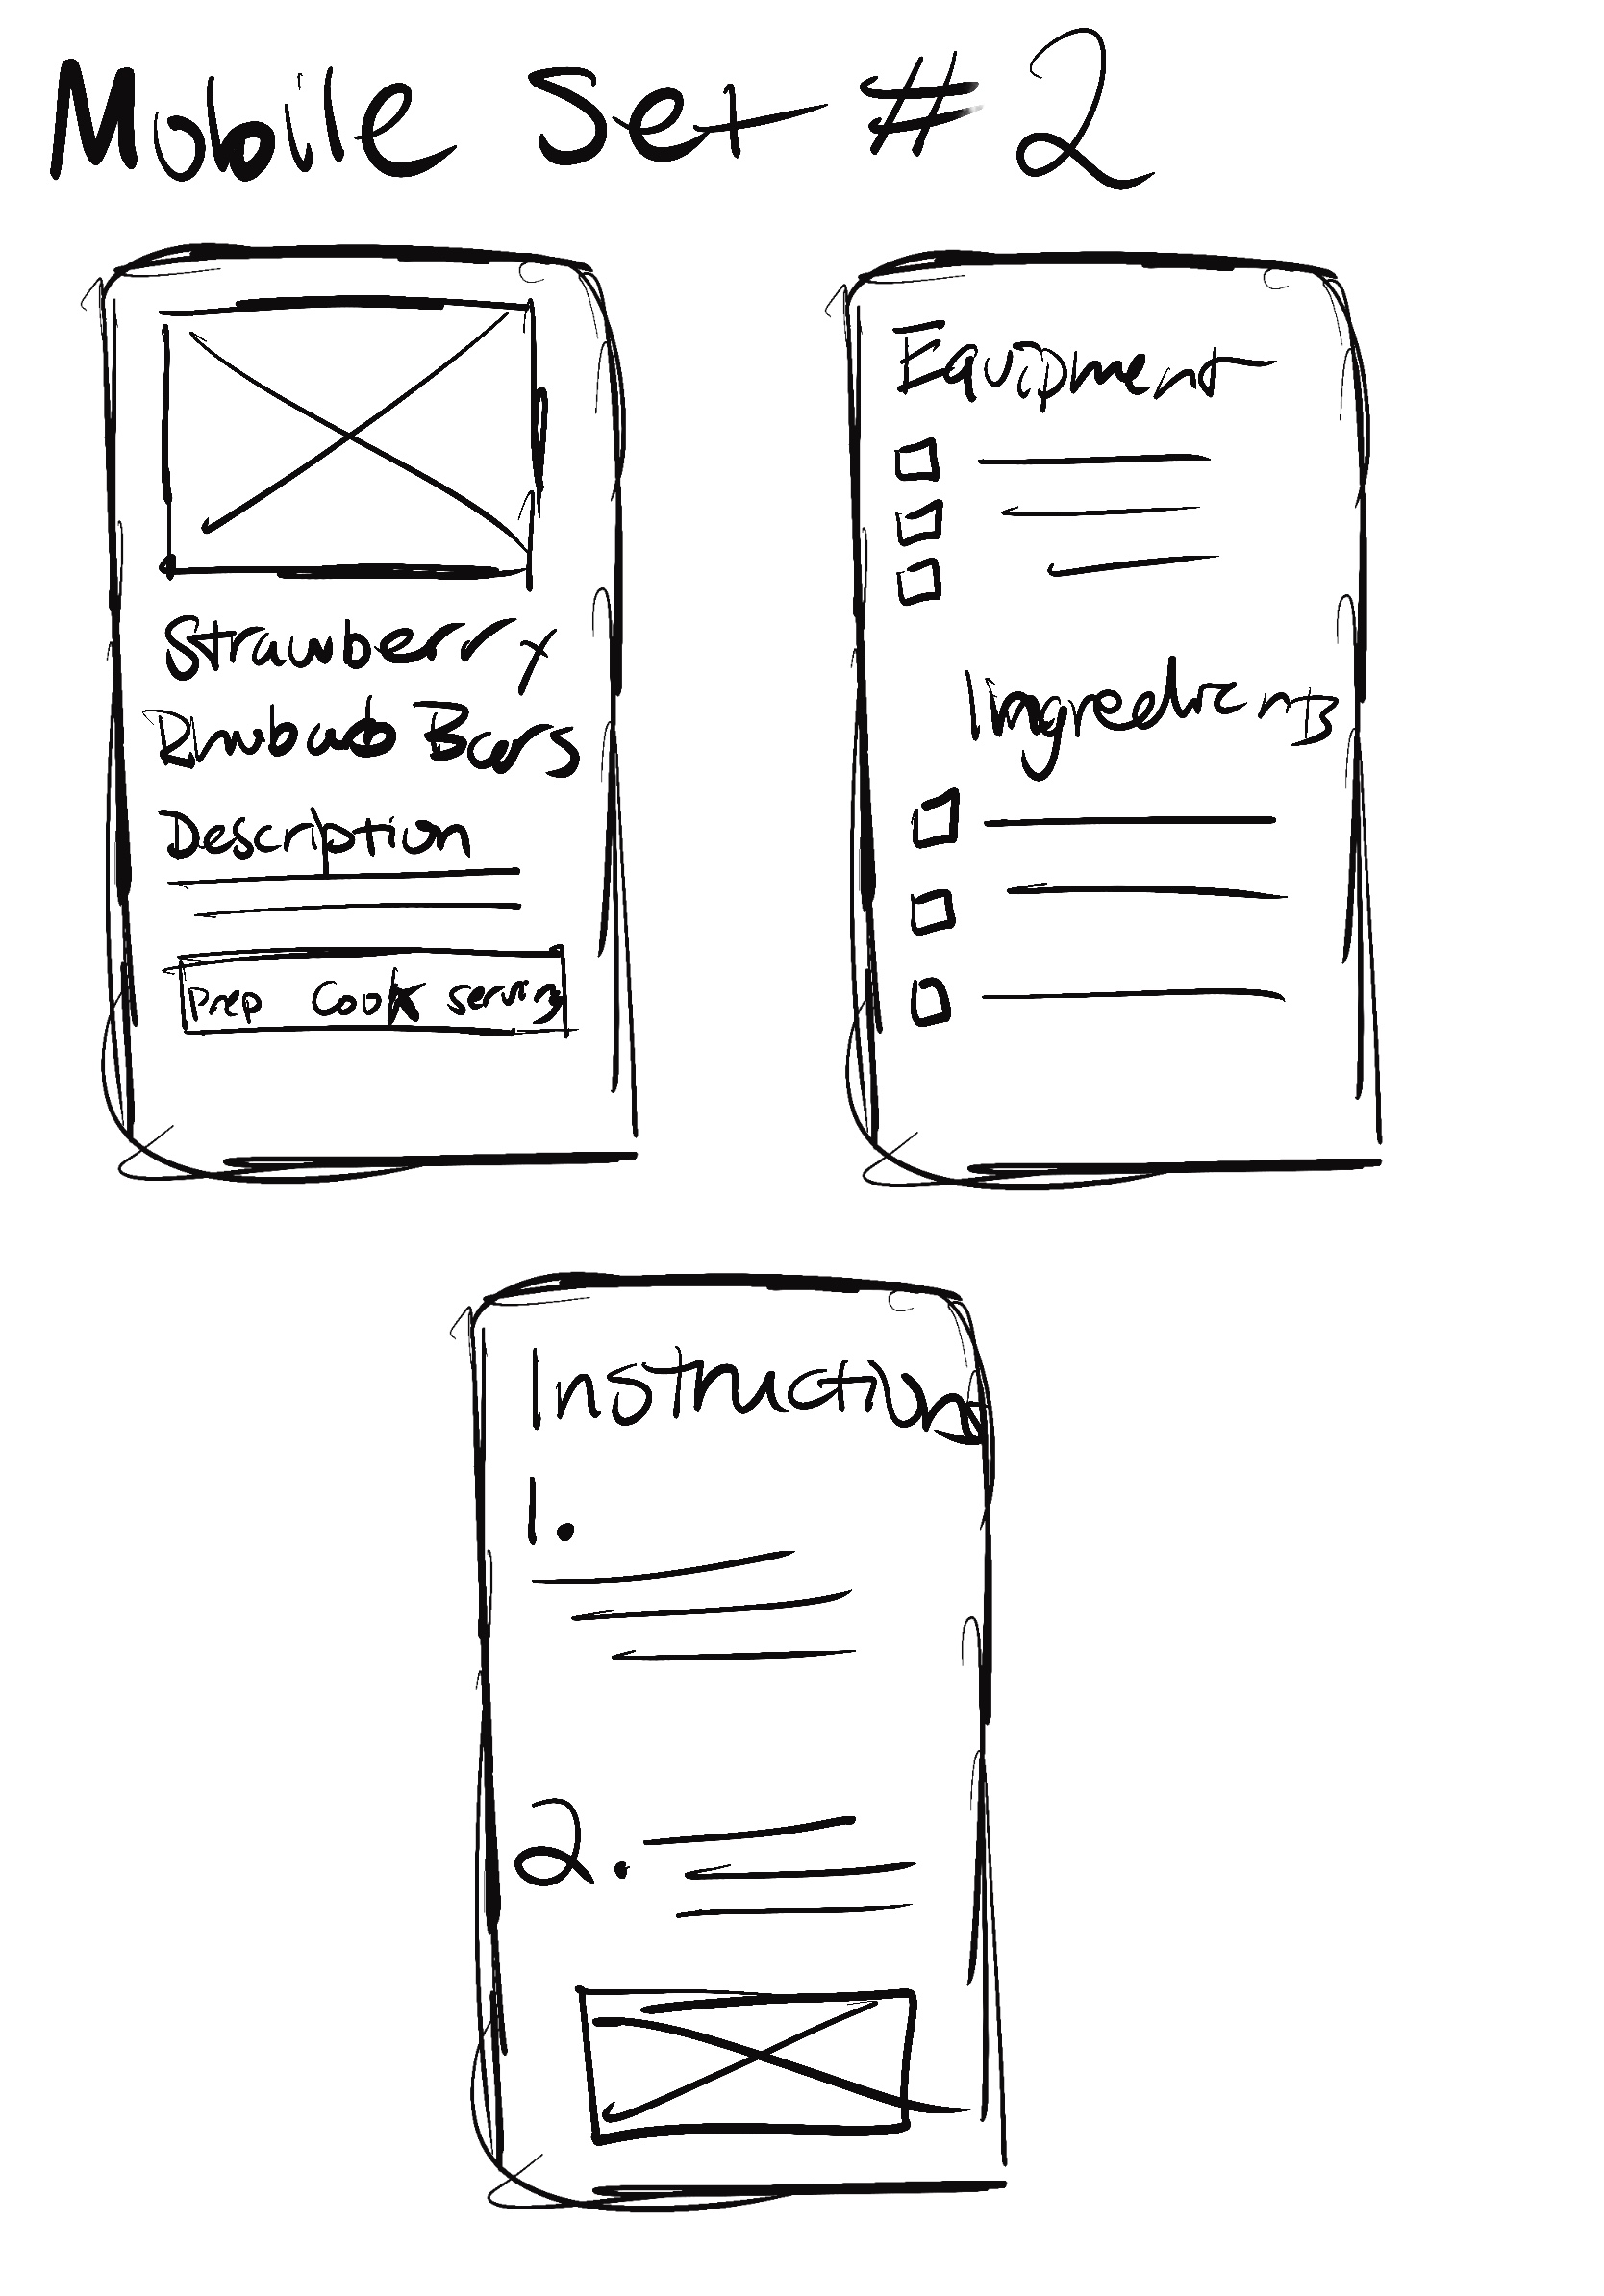 Mobile Set #2
Strawberry
Rhubarb Bars
Description
Prep Cook serving
Equipment
Ingredients
Instructions
1.
2.